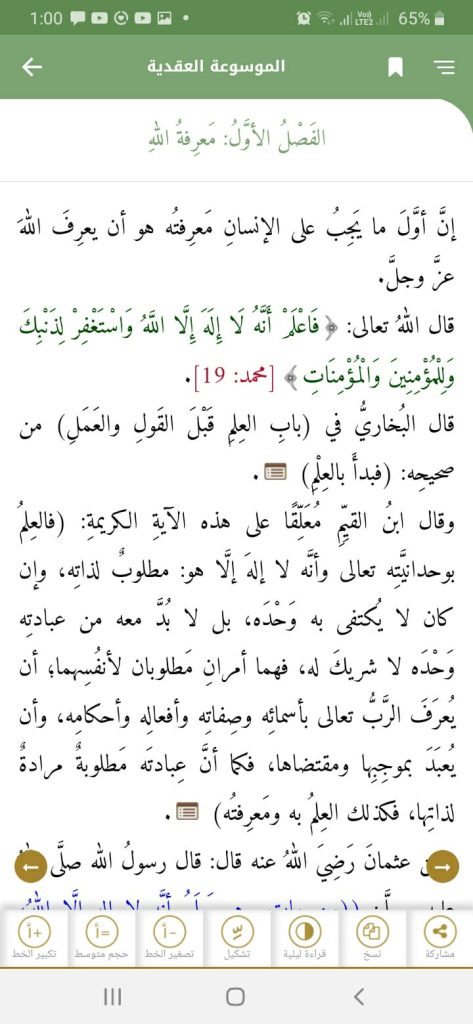 1:00 65%
Vo) LTE2
الموسوعة العقدية
الفَصْلُ الأوَّلُ: مَعرِفةُ اللهِ
إنَّ أوَّلَ ما يَجِبُ على الإنسانِ مَعرِفتُه هو أن يعرِفَ اللهَ
عزَّ وجلَّ.
قال اللهُ تعالى: ﴿فَاعْلَمْ أَنَّهُ لَا إِلَهَ إِلَّا اللَّهُ وَاسْتَغْفِرْ لِذَنْبِكَ
وَلِلْمُؤْمِنِينَ وَالْمُؤْمِنَاتِ﴾ [محمد: 19].
قال البُخاريُّ في (بابِ العِلمِ قَبْلَ القَولِ والعَمَلِ) من
صحيحِه: (فبدأَ بالعِلْمِ) .
وقال ابنُ القيِّمِ مُعَلِّقًا على هذه الآيةِ الكريمةِ: (فالعِلمُ
بوحدانيَّتِه تعالى وأنَّه لا إلهَ إلَّا هو: مطلوبٌ لذاتِه، وإن
كان لا يُكتفى به وَحْدَه، بل لا بُدَّ معه من عبادتِه
وَحْدَه لا شريكَ له، فهما أمرانِ مَطلوبان لأنفُسِهما؛ أن
يُعرَفَ الرَّبُّ تعالى بأسمائِه وصِفاتِه وأفعالِه وأحكامِه، وأن
يُعبَدَ بموجِبِها ومقتضاها، فكما أنَّ عِبادتَه مَطلوبةٌ مرادةٌ
لذاتِها، فكذلك العِلمُ به ومَعرِفتُه) .
عثمانَ رَضِيَ اللهُ عنه قال: قال رسولُ الله صلَّى
مشاركة نسخ قراءة ليلية تشكيل تصغير الخط حجم متوسط تكبير الخط